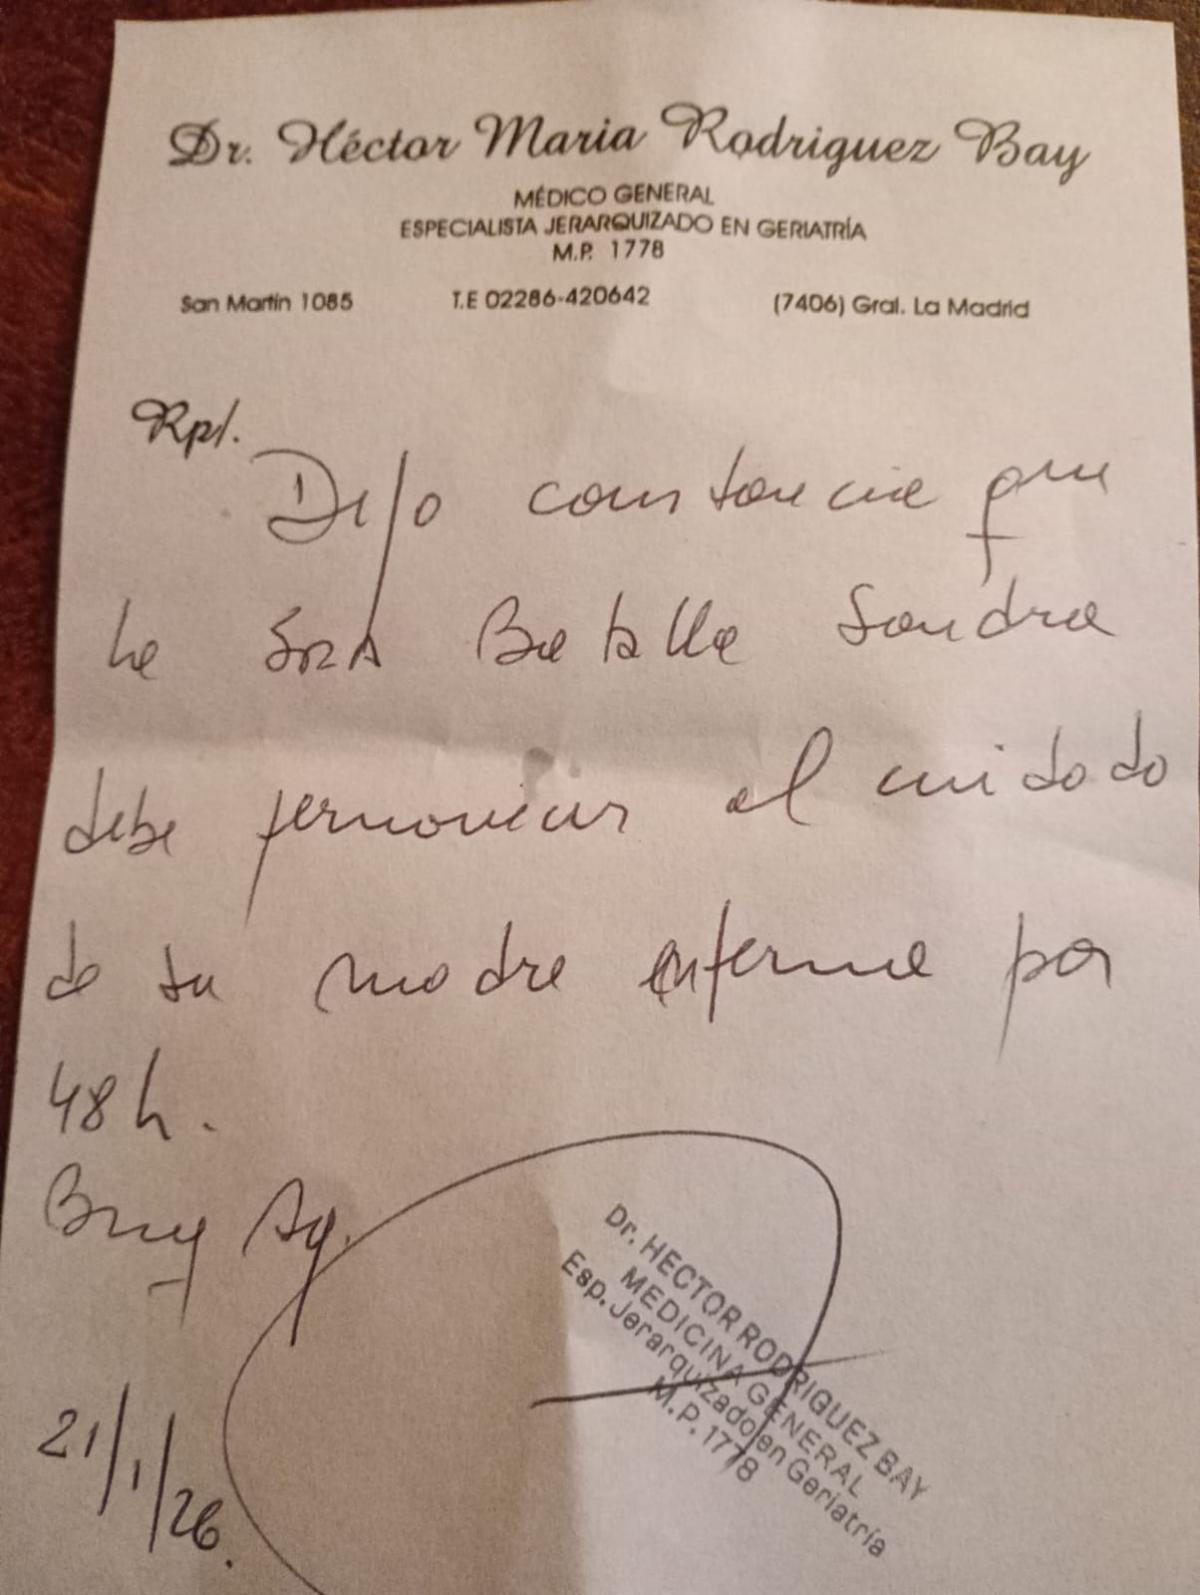 Dr. Héctor Maria Rodriguez Bay
MÉDICO GENERAL
ESPECIALISTA JERARQUIZADO EN GERIATRÍA
M.P. 1778
San Martín 1085 T.E 02286-420642 (7406) Gral. La Madrid
Rp/.
Dejo constancia que
la SRA Batalla Sandra
debe permanecer al cuidado
de su madre enferma por
48h.
Dr. HECTOR RODRIGUEZ BAY
MEDICINA GENERAL
Esp. Jerarquizado en Geriatría
M.P. 1778
21/1/26.